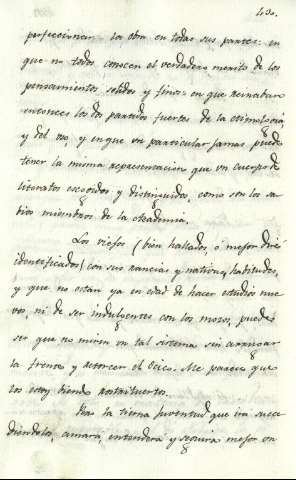 430.
perfeccionar la obra en todas sus partes: en
que no todos conocen el verdadero merito de los
pensamientos solidos y finos: en que reinaban
entonces los dos partidos fuertes de la etimologia,
y del uso, y en que un particular jamas puede
tener la misma representacion que un cuerpo de
literatos escogidos y distinguidos, como son los sa-
bios miembros de la Academia.
Los viejos (bien hallados, ó mejor diré
identificados) con sus rancias y nativas habitudes,
y que no estan ya en edad de hacer estudios nue-
vos, ni de ser indulgentes con los mozos, puede
ser que no miren un tal sistema sin arrugar
la frente y retorcer el ocico. Me parece que
los estoy viendo rostrituertos.
Mas la tierna juventud que irá succe-
diendolos, amará, entenderá y seguirá mejor un